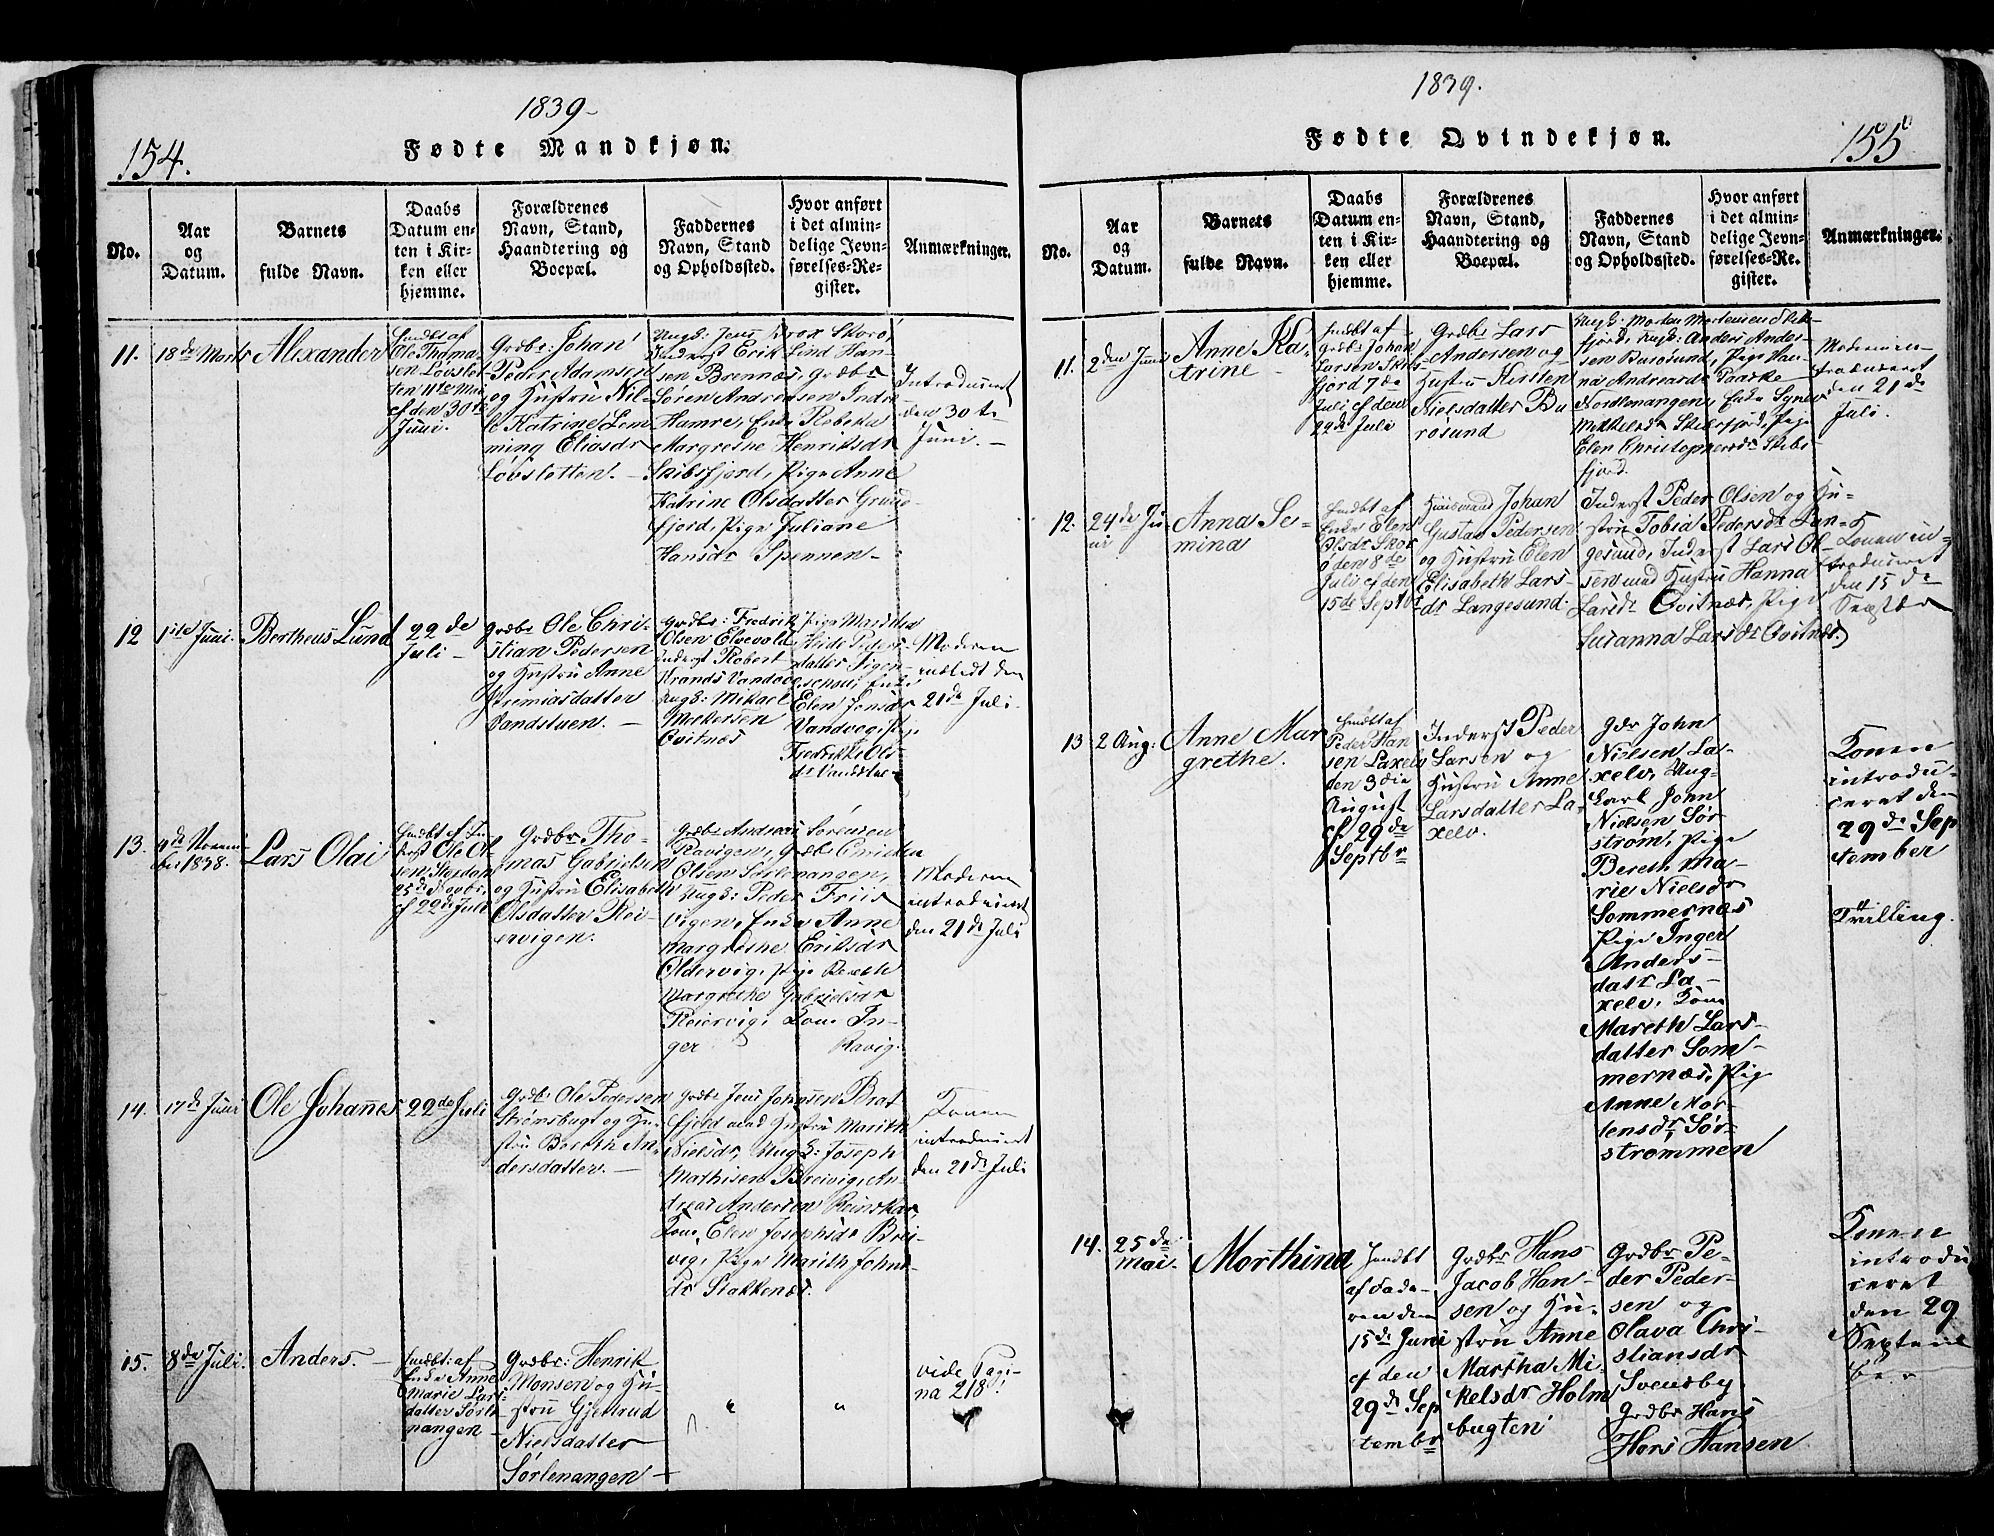 1839
154.
Fødte Mandkjøn.
No.
Aar
og
Datum.
Barnets
fulde Navn.
Daabs
Datum en-
ten i Kir-
ken eller
hjemme.
Forældrenes
Navn, Stand,
Haandtering og
Boepæl.
Faddernes
Navn, Stand
og Opholdssted.
Hvor anført
i det almin-
delige Jevn-
førelses-Re-
gister.
Anmærkninger.
11.
18de Marts
Alexander
Ole Thoma-
sen
ten 11te Mai
cf den 30te
Juni.
Grdbr: Johan
Peder Adamsen
og Hustru Nil-
le Katrine Lem-
ming Eliasdr
Lovsletten. -
Ungk: Jens Brox Skorö,
Inderst Erik Lind Han-
sen Brennæs, Grdbr
Sören Andreasen Indre
Hamre, Enke Rebeka
Margrethe Henriksdr
Skibsfjord, Pige Anne
Katrine Olsdatter Grund-
fjord, Pige Juliane
Hansdr Spennen -
Introduceret
den 30te
Juni. -
12
1ste Juni.
Bertheus Lund
22de
Juli -
Grdbr Ole Chri-
stian Pedersen
og Hustru Anne
Jeremiasdatter
Vandstuen. -
Grdbr: Fredrik
Olsen Elvevold
Inderst Robert
Strands Vandvog
Ungk: Mikael
Mikkelsen
Qvitnæs
Pige Maritha
Heide Peders-
datter
Elen Jensdr
Vandvog, Pige
Fredrikke Ols-
dr Vandstue -
Moderen
indledt den
21de Juli.
13.
9de Novem-
ber 1838.
Lars Olai
Hmdbt af In-
derst Ole Ol-
sen,
25de Novbr.
cf 22de Juli
Grdbr Tho-
mas Gabrielsen
og Hustru Elisabeth
Olsdatter Rei-
ervigen.
Grdbr Andreas Sörensen
Ravigen, Grdbr
Olsen Sörlenangen,
Ungk: Peder Friis
vigen, Enke Anne
Margrethe Eriksdr
Oldervig, Pige Bereth
Margrethe Gabrielsdr
Reiervig, Kone In-
ger Ravig.
Moderen
introduceret
den 21de Juli
14.
17de Juni
Ole Johannes
22de Juli
Grdbr Ole Pedersen
Strømsbugt og Hu-
stru Bereth An-
dersdatter. -
Grdbr Jens Johnsen Brat
fjord med Hustru Marith
Nielsdr, Ungk: Joseph
Mathisen Breivig, An-
dreas Andersen Reinskar,
Kone, Elen Josephsdr Brei-
vig, Pige Marith Johns
dr Stakkenæs.
Konen
introduceret
den 21de Juli
15.
8de Juli.
Anders. -
Hmdbt: af
Enke Anne
Marie Lars-
datter Sörle-
nangen
Grdbr: Henrik
Monsen og Hu-
stru Gjertrud
Nielsdatter
Sørlenangen -
"
"
vide Pagi-
na 218!
1839.
155
Fødte Qvindekjøn.
No.
Aar
og
Datum.
Barnets
fulde Navn.
Daabs
Datum en-
ten i Kir-
ken eller
hjemme.
Forældrenes
Navn, Stand,
Haandtering og
Boepæl.
Faddernes
Navn, Stand
og Opholdssted.
Hvor anført
i det almin-
delige Jevn-
førelses-Re-
gister.
Anmærkninger.
11.
2den Juni
Anne Ka-
trine -
Hmdbt af
Grdbr Johan
Larsen Skibs-
fjord 7de
Juli cf den
22de Juli
Grdbr Lars
Andersen og
Hustru Kirsten
Nielsdatter Bu-
rösund
Ungk: Morten Mortensen Skibs-
fjord, Ungk: Anders Ander-
sen Burösund, Pige Han-
na Andreasdr Paaske
Nordlenangen, Enke Synev
Mikkelsdr Skibsfjord, Pige
Elen Christophersdr Skibs-
fjord.
Moderen in-
troduceret
den 21de
Juli.
12.
24de Ju-
ni
Anna Se-
mina
Hmdbt af
Enke Elen
Olsdr Skor-
ö den 8de
Juli cf den
15de Septbr
Huusmand Johan
Gustav Pedersen
og Hustru Elen
Elisabeth Lars-
dr Langesund.
Inderst Peder Olsen og Hu-
stru Tobia Pedersdr Lan-
gesund, Inderst Lars Ol-
sen med Hustru Hanna
Larsdr Qvitnæs, Pige
Susanna Larsdr Qvitnæs.)
Konen in-
troduceret
den 15de
Septbr
13
2 Aug:
Anne Mar-
grethe.
Hmdbt af
Peder Han-
sen Laxelv
den 3die
August
cf 29de
Septbr
Inderst Peder
Larsen og
Hustru Anne
Larsdatter La-
xelv.
Gdr John
Nielsen La-
xelv, Ung-
karl John
Nielsen Sör-
strøm, Pige
Bereth Ma-
rie Nielsdr
Sommernæs
Pige Inger
Anders-
datr La-
xelv, Kone
Mareth Lars-
datter Som-
mernæs, Pige
Anne Mor-
tensdr, Sør-
strømmen
Konen
introdu-
ceret den
29de Sep
tember
Tvilling.
14.
25de
Mai.
Morthina
Hmdbt
af Fade-
ren den
15de Juni
cf den
29de Sep
tembr
Grdbr Hans
Jacob Han-
sen og Hu-
stru Anne
Martha Mi-
kelsdr Holm
bugten
Grdbr Pe-
der Peder-
sen og
Olava Chri-
stiansdr
Svensby
Grdbr Hans
Hansen
Konen
introdu
ceret
den 29
Septem
ber